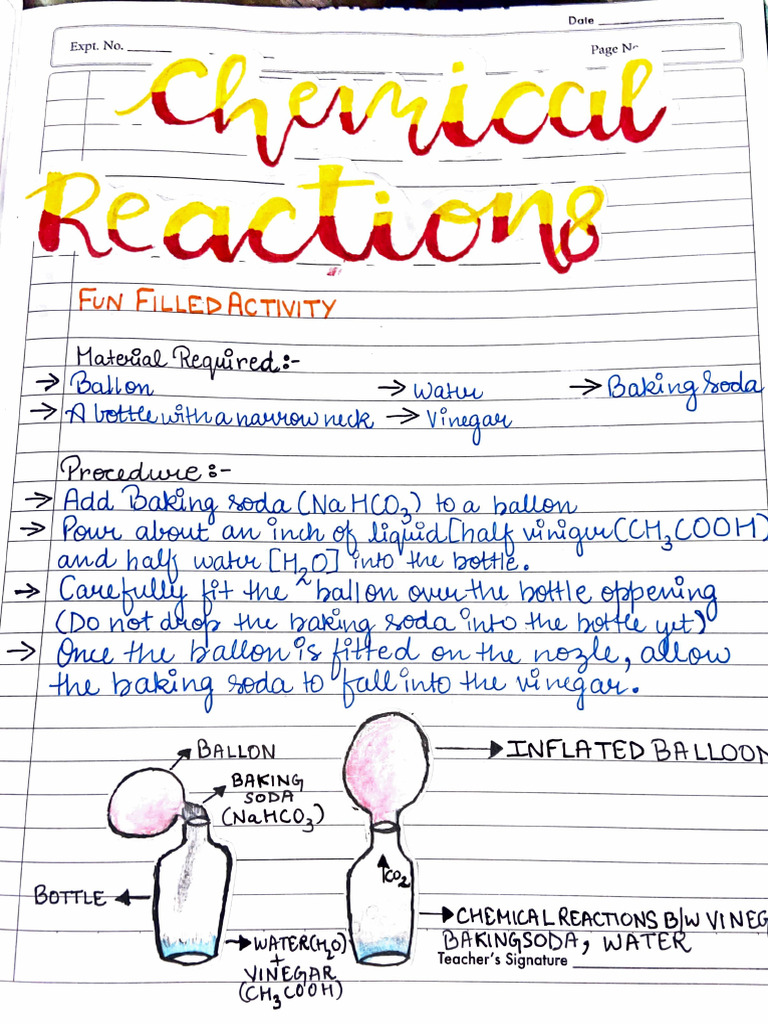 Date
Expt. No.
Page N
Chemical
Reactions
FUN FILLED ACTIVITY
Material Required:-
→ Ballon → Water → Baking Soda
→ A bottle with a narrow neck → Vinegar
Procedure:-
→ Add Baking soda (NaHCO3) to a ballon
→ Pour about an inch of liquid [half viniger (CH3COOH)
and half water [H2O] into the bottle.
→ Carefully fit the ballon over the bottle oppening
(Do not drop the baking soda into the bottle yet)
→ Once the ballon is fitted on the nozle, allow
the baking soda to fall into the vinegar.
BALLON
BAKING
SODA
(NaHCO3)
BOTTLE
WATER(H2O)
+
VINEGAR
(CH3COOH)
INFLATED BALLOON
CO2
CHEMICAL REACTIONS B/W VINEG
BAKING SODA, WATER
Teacher's Signature